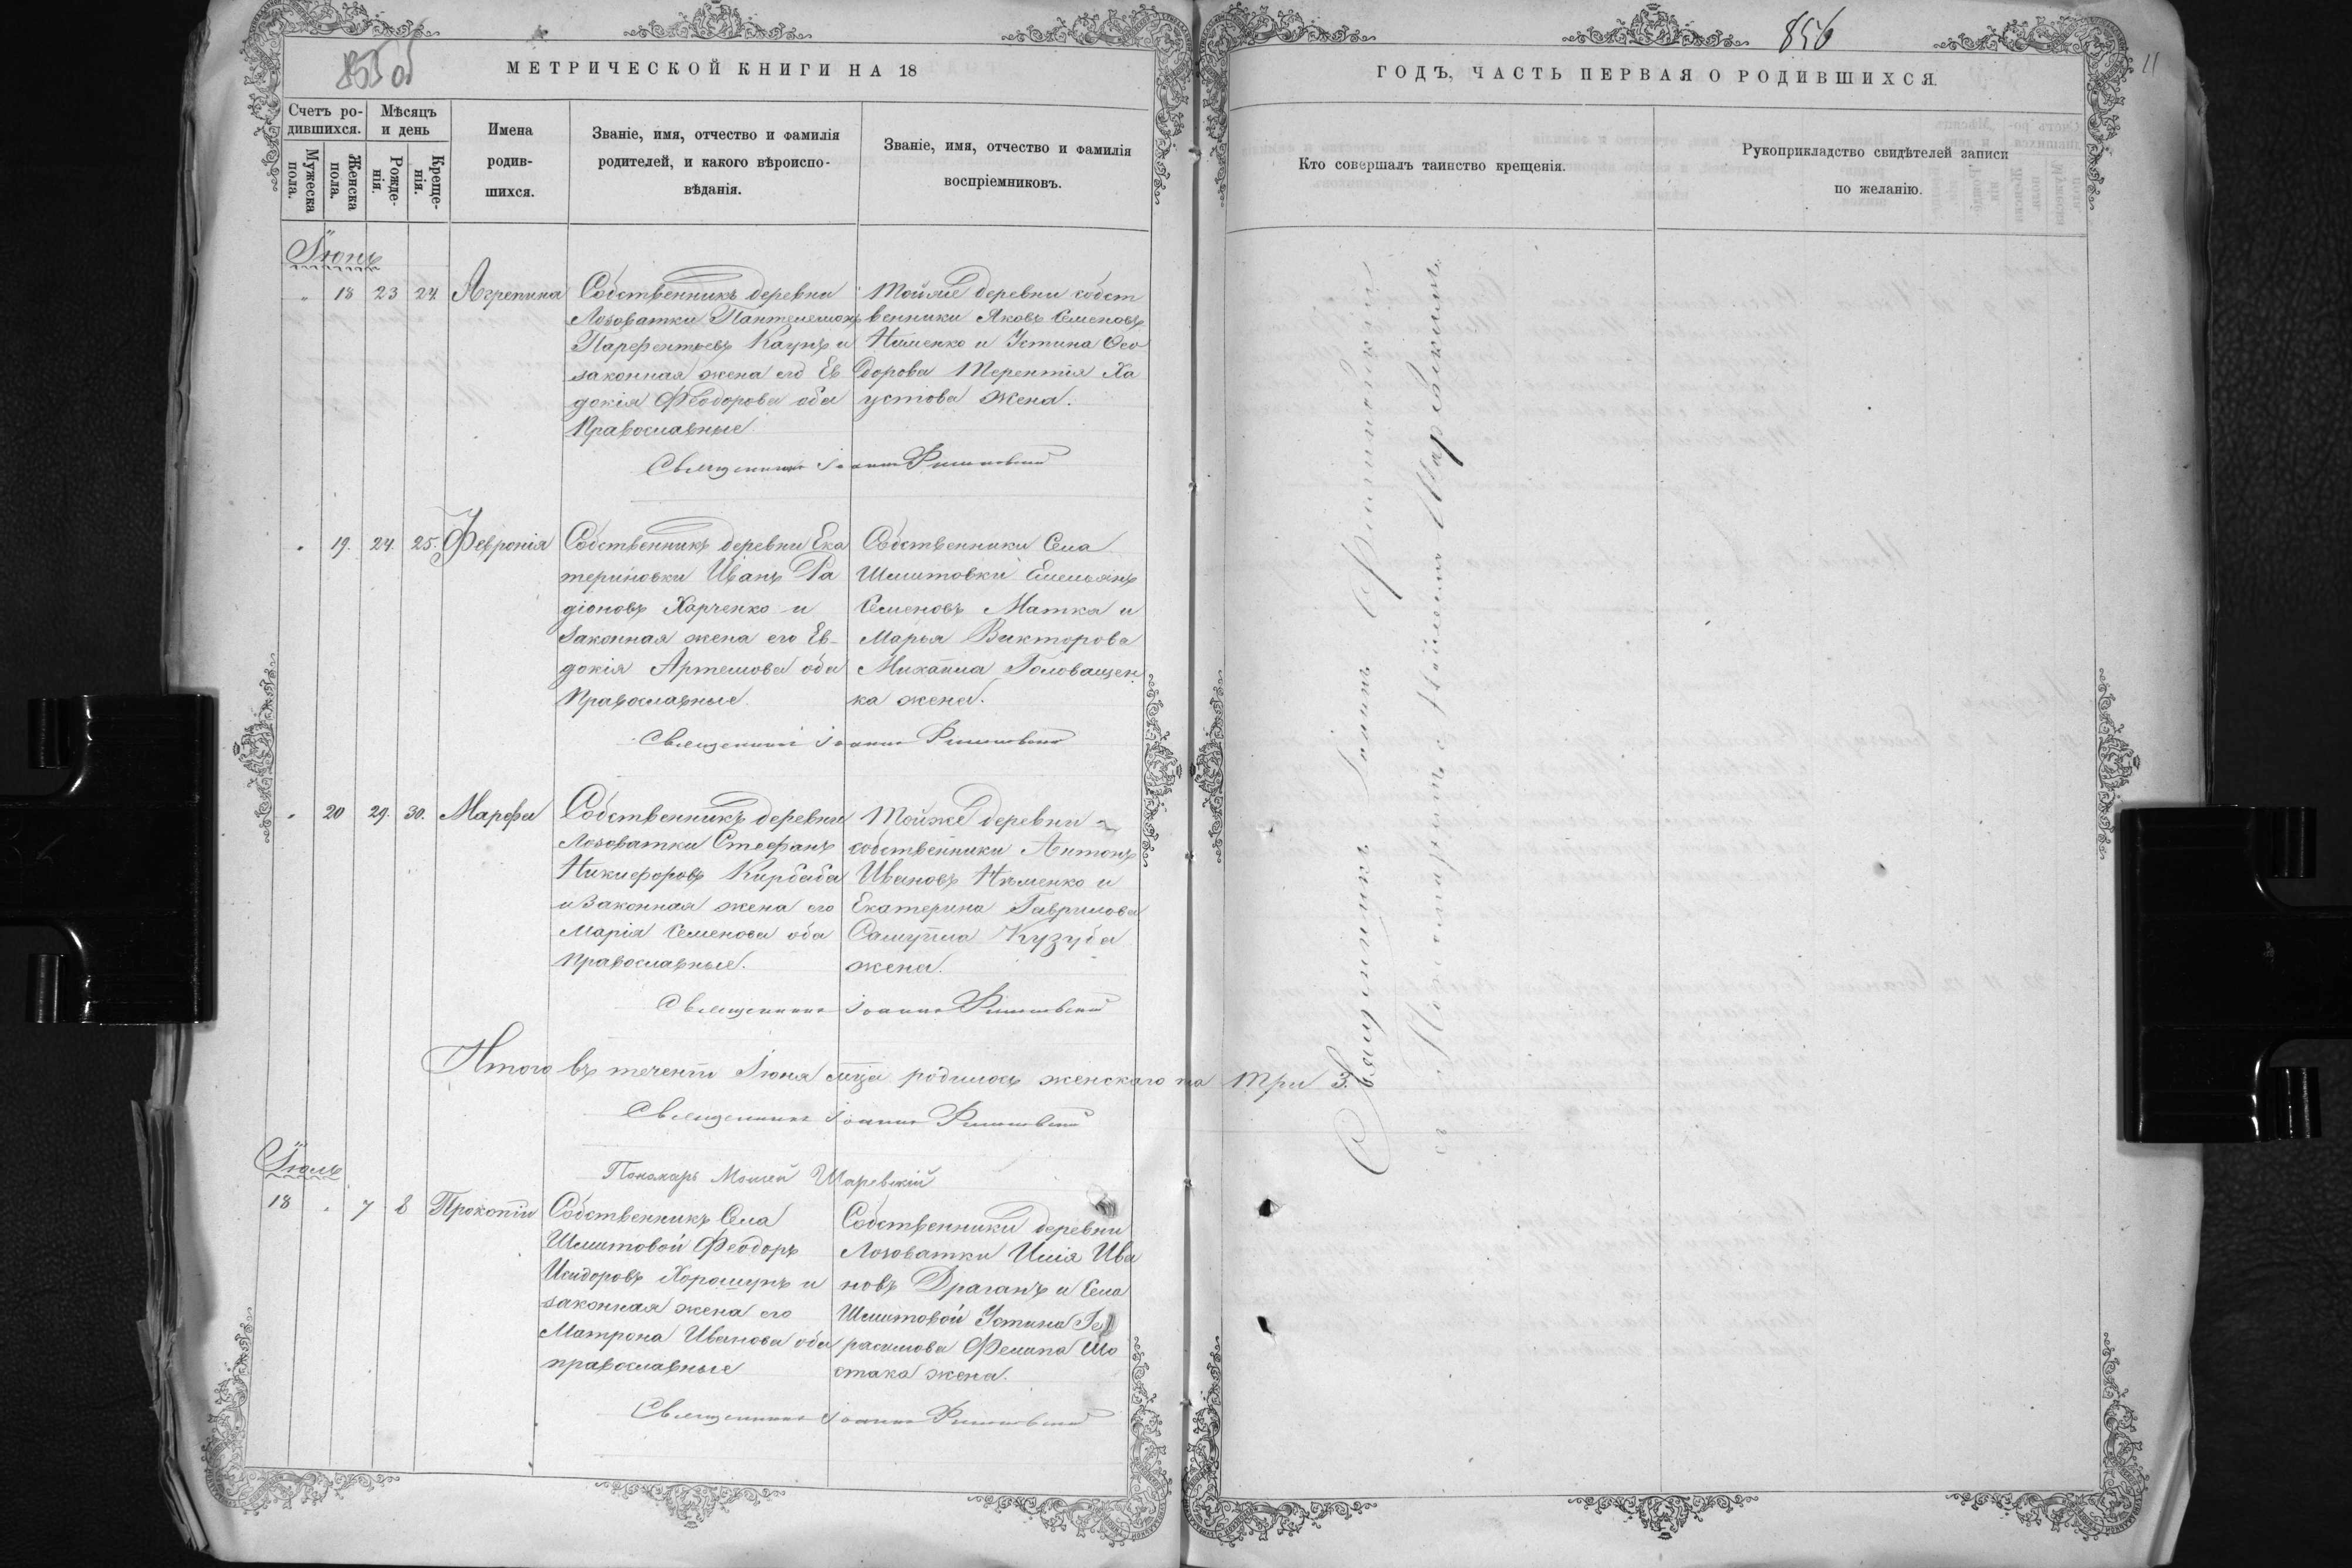 855 об
МЕТРИЧЕСКОЙ КНИГИ НА 18
Счетъ ро-
дившихся.
Мѣсяцъ
и день
Мужеска
пола.
Женска
пола.
Рожде-
нія.
Креще-
нія.
Имена
родив-
шихся.
Званіе, имя, отчество и фамилія
родителей, и какого вѣроиспо-
вѣданія.
Званіе, имя, отчество и фамилія
воспріемниковъ.
Іюнь
" 18 23 24 Агрепина
Собственникъ деревни
Лозоватки Пантелемонъ
Парфентьевъ Каунъ и
законная жена его Ев
докія Феодорова оба
Православные.
Тойже деревни собст
венники Яковъ Семеновъ
Нименко и Устина Ѳео
дорова Терентія Ха
устова жена.
Священникъ Іоаннъ
" 19. 24. 25. Феврон​ія
Собственникъ деревни Ека
териновки Иванъ Ра
діоновъ Харченко и
Законная жена его Ев-
докія Артемова оба
Православные.
Собственники Села
Шлитовки Емельянъ
Семеновъ Матка и
Марья Викторова
Михаила Головащен
ка жена.
Священникъ Іоаннъ
" 20 29. 30. Марфа
Собственникъ деревни
Лозоватки Стефанъ
Никифоровъ Кирбаба
и Законная жена его
Марія Семенова оба
Православные.
Тойже деревни
собственники Антонъ
Ивановъ Нѣменко и
Екатерина Гаврилова
Самуила Кузуба
жена.
Священникъ Іоаннъ
Итого въ теченіи Іюня мца родилось женскаго по три 3.
Священникъ Іоаннъ
Пономарь Моисей Царевскій
Іюль
18 " 7 8 Прокопій
Собственникъ Села
Шлитовой Феодоръ
Исидоровъ Хорошунъ и
законная жена его
Матрона Иванова оба
православные
Собственники деревни
Лозоватки Илія Ива
новъ Драганъ и Села
Шлитовой Устина Ге
расимова Филипа Шо
стака жена.
Священникъ Іоаннъ
856
11
ГОДЪ, ЧАСТЬ ПЕРВАЯ О РОДИВШИХСЯ.
Кто совершалъ таинство крещенія.
Рукоприкладство свидѣтелей записи
по желанію.
Священникъ Іоаннъ
съ Пономаремъ Моисеемъ Царевскимъ